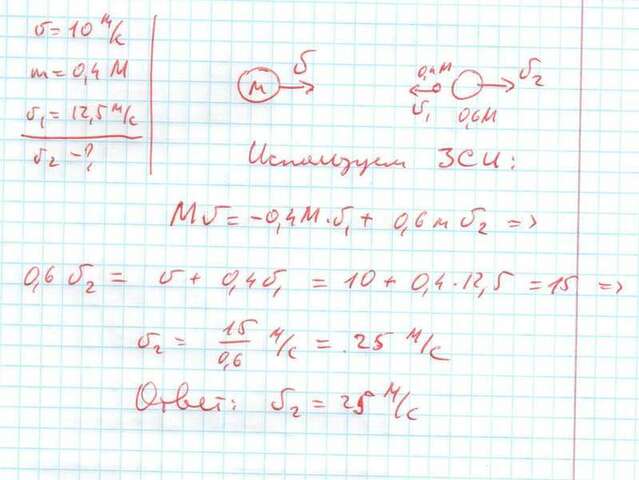 υ = 10 м/с
m = 0,4 M
υ₁ = 12,5 м/с
υ₂ - ?
M υ
0,4M υ₂
υ₁ 0,6M
Используем ЗСИ:
Mυ = -0,4M·υ₁ + 0,6м υ₂ =>
0,6 υ₂ = υ + 0,4υ₁ = 10 + 0,4·12,5 = 15 =>
υ₂ = 15/0,6 м/с = 25 м/с
Ответ: υ₂ = 25 м/с